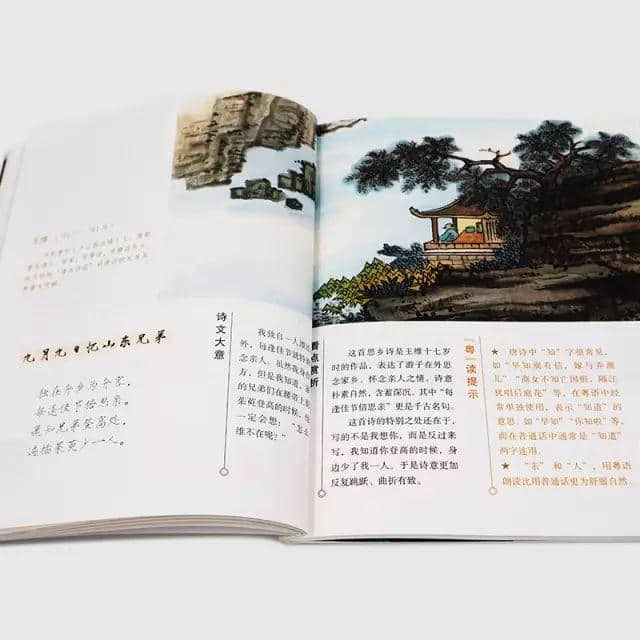 王维
九月九日忆山东兄弟
独在异乡为异客，
每逢佳节倍思亲。
遥知兄弟登高处，
遍插茱萸少一人。
诗文大意
我独自一人漂
外，每逢佳节就特
念亲人。虽然我身
方，但是我知道，
的兄弟们在腰带上
朱萸登高的时候，
一定会想：“怎么
维不在呢？”
看点赏析
这首思乡诗是王维十七岁
时的作品，表达了游子在外思
念家乡、怀念亲人之情。诗意
朴素自然，含蓄深沉。其中“每
逢佳节倍思亲”更是千古名句。
这首诗的特别之处还在于，
写的不是我想你，而是反过来
写，我知道你登高的时候，身
边少了我一人。于是诗意更加
反复跳跃、曲折有致。
“粤”读提示
★ 唐诗中“知”字很常见，
如“早知潮有信，嫁与弄潮
儿”“商女不知亡国恨，隔江
犹唱后庭花”等，在粤语中经
常单独使用，表示“知道”的
意思，如“早知”“你知啦”等，
而在普通话中通常是“知道”
两字连用。
★ “东”和“人”，用粤语
朗读比用普通话更为舒服自然